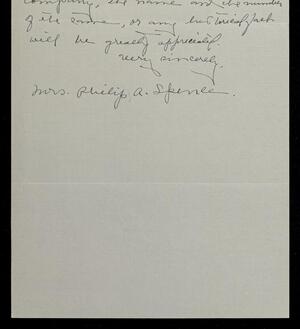 company, the name and the number
of the same, or any historical fact
will be greatly appreciated.
Very sincerely,
Mrs. Philip A. Spence.